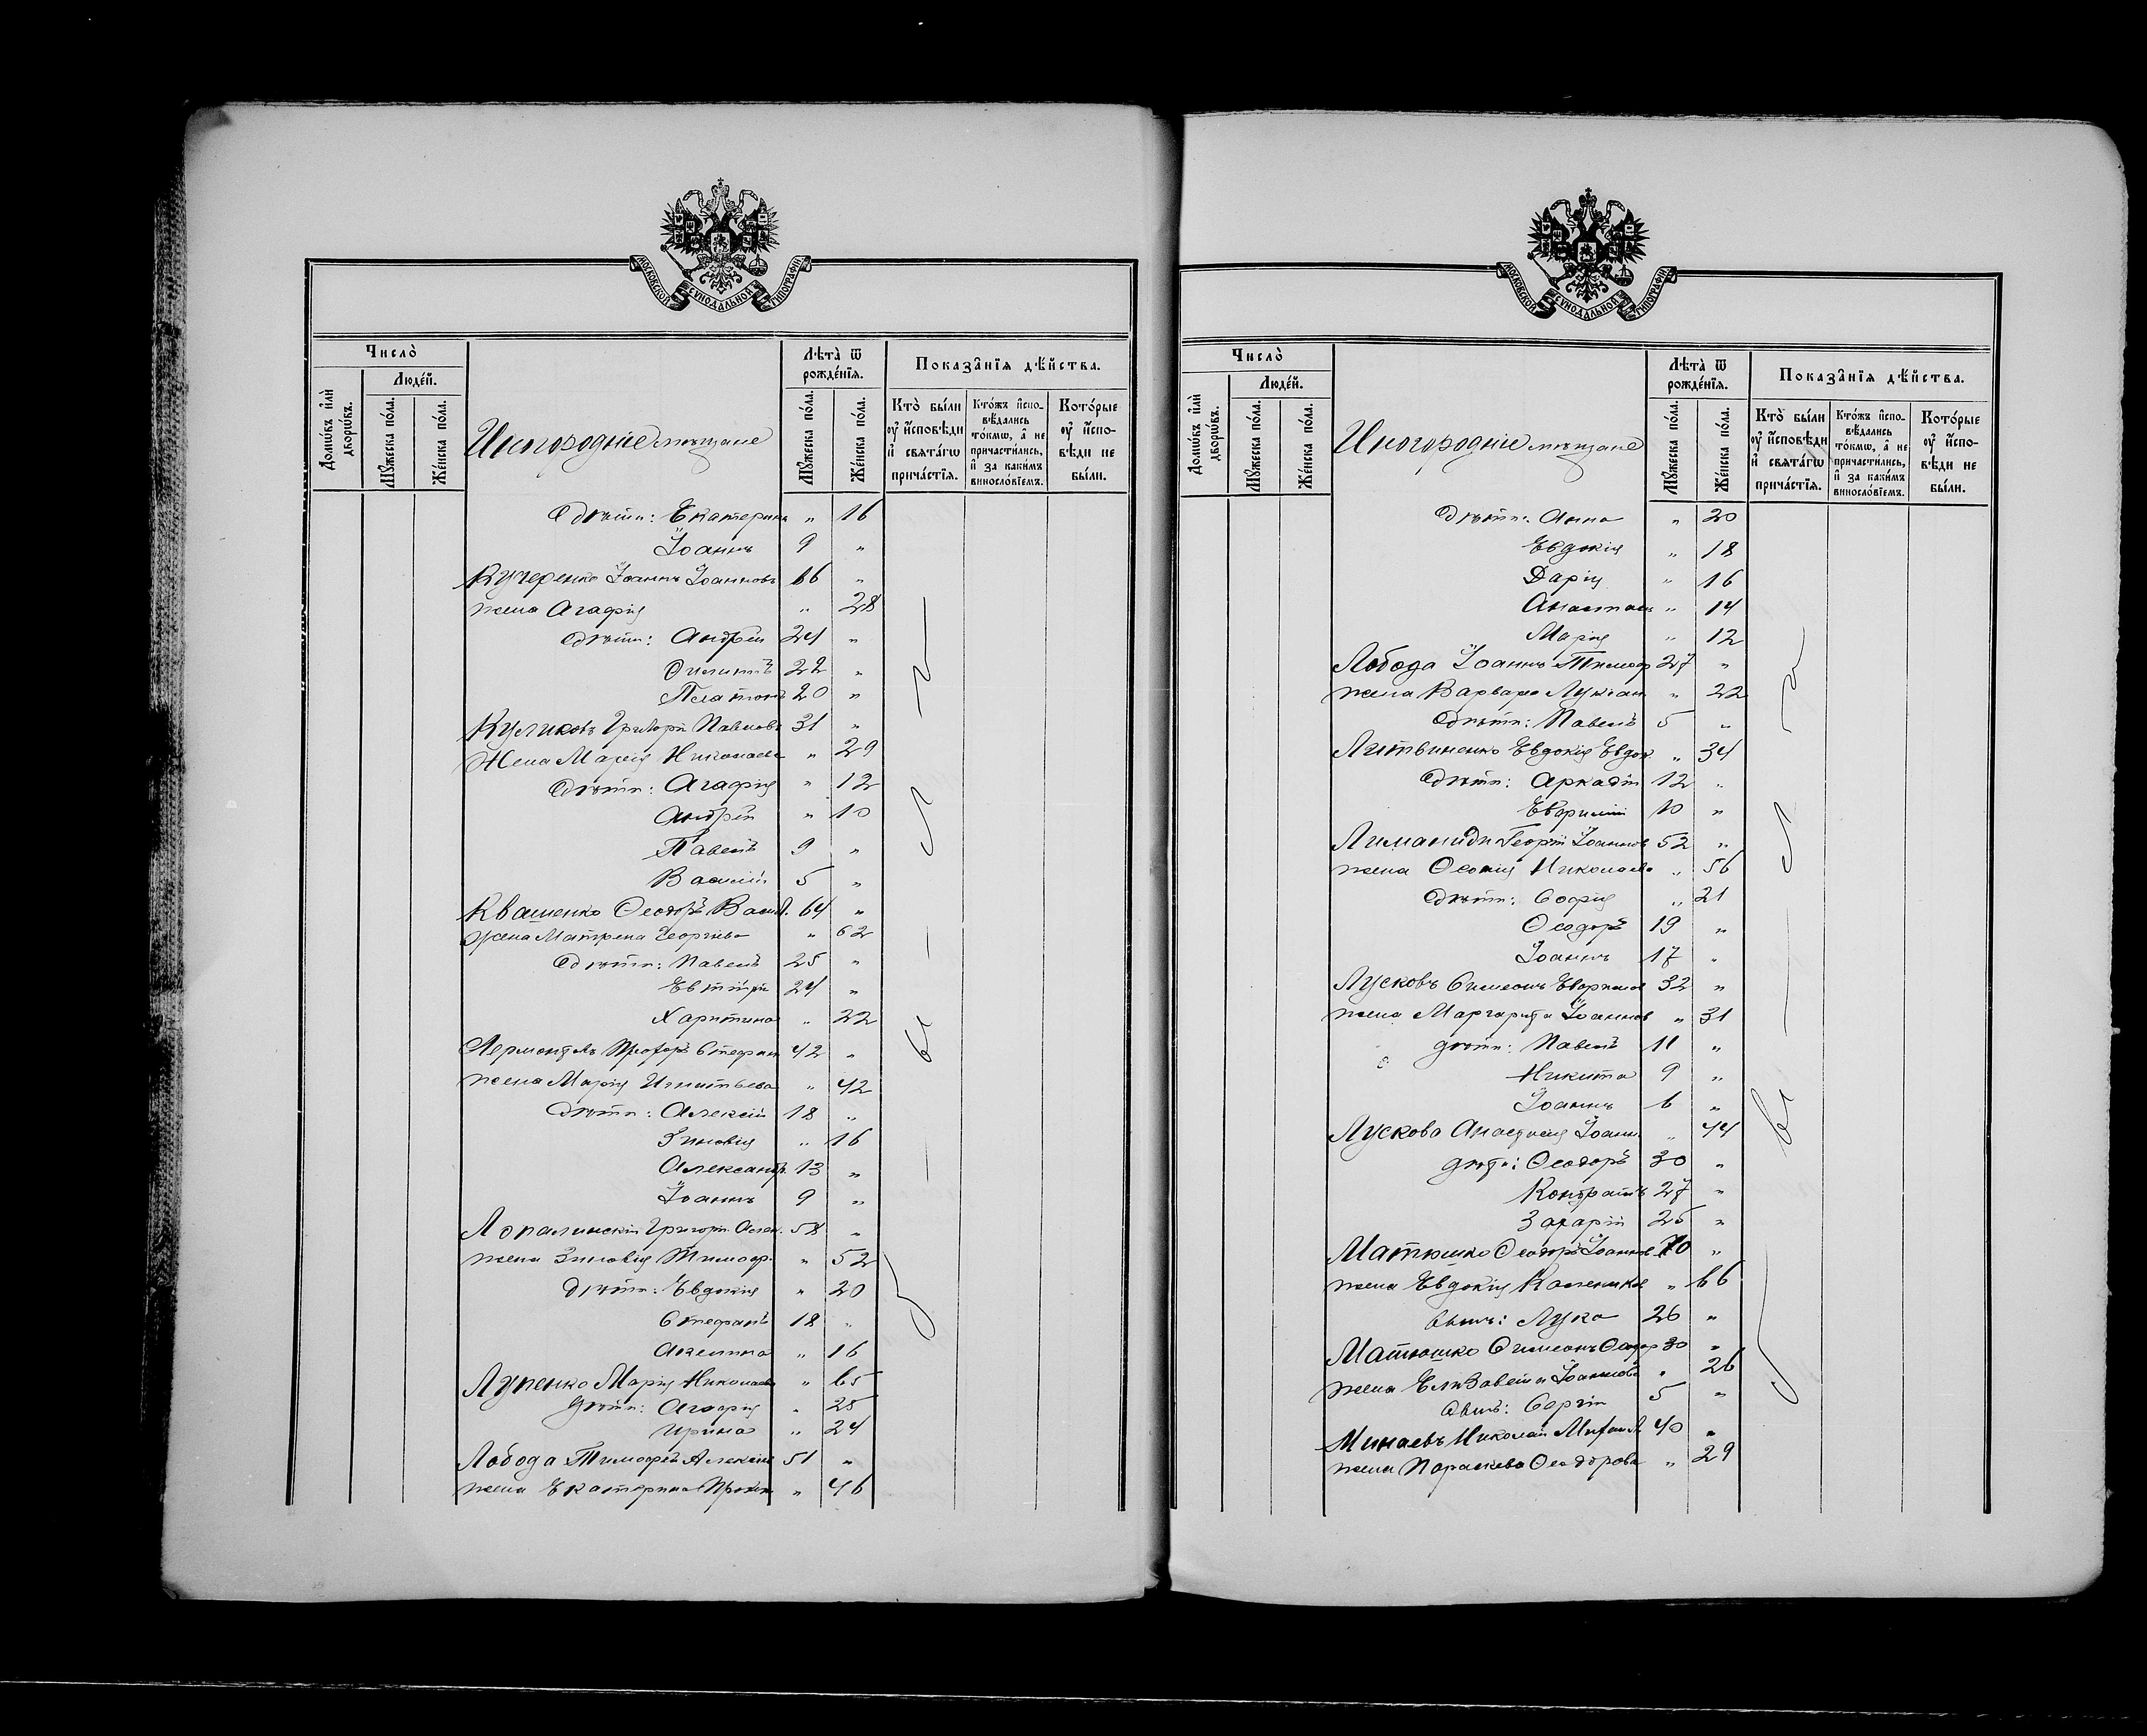 МОСКОВСКОЙ СУНОДАЛЬНОЙ ТИПОГРАФІИ
Число̀
Домѡ́въ и҆лѝ дворѡ́въ.
Люде́й.
Мꙋ́жеска по́ла.
Же́нска по́ла.
Иногородніе мѣщане
Лѣта̀ ѿ рожде́нїѧ.
Мꙋ́жеска по́ла.
Же́нска по́ла.
Показа̑нїѧ дѣ́йства.
Кто̀ бы́ли ᲂу҆ и҆сповѣди и҆ свѧта́гѡ прича́стїѧ.
Кто́жъ и҆спо-вѣдались то́кмѡ, а҆ не причасти́лись, и҆ за каки́мъ винослові́емъ.
Кото́рые ᲂу҆ и҆спо-вѣди не бы́ли.
дѣти: Екатерина „ 16
Іоаннъ 9 „
Кучеренко Іоаннъ Іоанновъ 66 „
жена Агафія „ 28
дѣти: Андрей 24 „
Филиппъ 22 „
Платонъ 20 „
Куликовъ Григорій Павловъ 31 „
Жена Марія Николаева „ 29
дѣти: Агафія „ 12
Андрей „ 10
Павелъ 9 „
Василій 5 „
Квашенко Ѳеодоръ Васил. 64 „
жена Матрена Георгіева „ 62
дѣти: Павелъ 25 „
24 „
Харитина „ 22
Стефан 42 „
жена Марія Игнатьева „ 42
дѣти: Алексій 18 „
Зиновія „ 16
Александр. 13 „
Іоаннъ 9 „
Лопалинскій Григорій Алек. 58 „
жена Зиновія Тимоф. „ 52
дѣти: Евдокія „ 20
Стефанъ 18 „
Акелина „ 16
Лупенко Марія Николаева „ 65
дѣти: Агафія „ 25
Ирина „ 24
Лобода Тимофей Алексіев 51 „
жена Екатерина Проков „ 46
МОСКОВСКОЙ СУНОДАЛЬНОЙ ТИПОГРАФІИ
Число̀
Домѡ́въ и҆лѝ дворѡ́въ.
Люде́й.
Мꙋ́жеска по́ла.
Же́нска по́ла.
Иногородніе мѣщане
Лѣта̀ ѿ рожде́нїѧ.
Мꙋ́жеска по́ла.
Же́нска по́ла.
Показа̑нїѧ дѣ́йства.
Кто̀ бы́ли ᲂу҆ и҆сповѣди и҆ свѧта́гѡ прича́стїѧ.
Кто́жъ и҆спо-вѣдались то́кмѡ, а҆ не причасти́лись, и҆ за каки́мъ винослові́емъ.
Кото́рые ᲂу҆ и҆спо-вѣди не бы́ли.
дѣти: Анна „ 20
Евдокія „ 18
Дарія „ 16
Анастасія „ 14
Марія „ 12
Лобода Іоаннъ Тимоф 27 „
жена Варвара Лукіан „ 22
дѣти: Павелъ 5 „
Литвиненко Евдокія Евдок. „ 34
дѣти: Аркадій 12 „
Евфимій 10 „
Лиманиди Георгій Іоаннов 52 „
жена Николаева „ 56
дѣти: Софія „ 21
Ѳеодоръ 19 „
Іоаннъ 17 „
Лусковъ Симеонъ Евфимов 32 „
жена Маргарита Іоаннов „ 31
дѣти: Павелъ 11 „
Никита 9 „
Іоаннъ 6 „
Лускова Анастасія Іоанн. „ 44
дѣти: Ѳеодоръ 30 „
Кондратъ 27 „
Захарій 25 „
Матюшко Ѳеодоръ Іоаннов 70 „
жена Евдокія „ 66
сынъ: Лука 26 „
Матюшко Симеонъ Ѳеодор 30 „
жена Елизавета Іоаннова „ 26
сынъ: Сергій 5 „
Минаевъ Николай Михаил. 40 „
жена Параскева Ѳеодорова „ 29